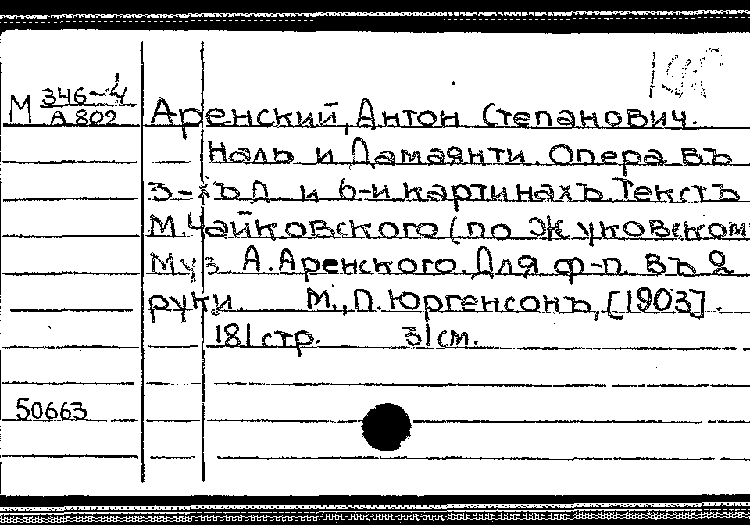 М 346-4
А 802
Аренский, Антон Степанович.
Наль и Дамаянти. Опера въ
3-хъ д. и 6-и картинахъ. Текстъ
М. Чайковского (по Жуковском
Муз А. Аренского. Для ф-п. въ 2
руки. М., П. Юргенсонъ, [1903].
181 стр. 31 см.
50663